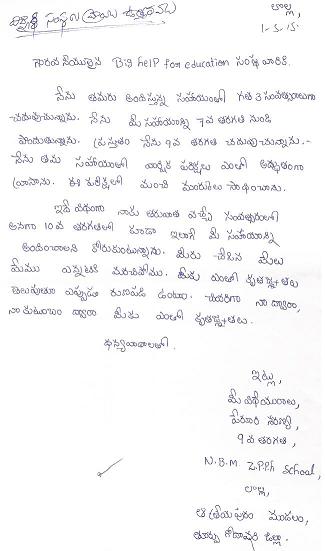 లాల్ల,
1-5-15.
గౌరవనీయులైన Big help for education సంస్థ వారికి.
నేను తమరు అందిస్తున్న సహాయంతో గత 3 సంవత్సరాలుగా
చదువుచున్నాను. నేను మీ సహాయాన్ని 7వ తరగతి నుండి
పొందుతున్నాను. ప్రస్తుతం నేను 9వ తరగతి చదువుచున్నాను.-
నేను తమ సహాయంతో వార్షిక పరీక్షలు ఎంతో అద్భుతంగా
వ్రాసాను. ఈ పరీక్షల్లో మంచి మార్కులు సాధించాను.
ఇదే విధంగా నాకు తరువాత వచ్చే సంవత్సరంలో
అనగా 10వ తరగతిలో కూడా ఇలాగే మీ సహాయాన్ని
అందించాలని కోరుకుంటున్నాను. మీరు చేసిన మేలు
మేము ఎన్నటికి మరచిపోము. మీకు ఎంతో కృతజ్ఞతలు
తెలుపుతూ ఎప్పుడూ రుణపడి ఉంటాం. చివరిగా నా ద్వారా,
నా కుటుంబం ద్వారా మీకు ఎంతో కృతజ్ఞతలు.
ధన్యవాదాలతో.
ఇట్లు,
మీ విధేయురాలు,
9వ తరగతి,
N.B.M Z.P.P.h School,
లాల్ల,
ఆత్రేయపురం మండలం,
తూర్పు గోదావరి జిల్లా.